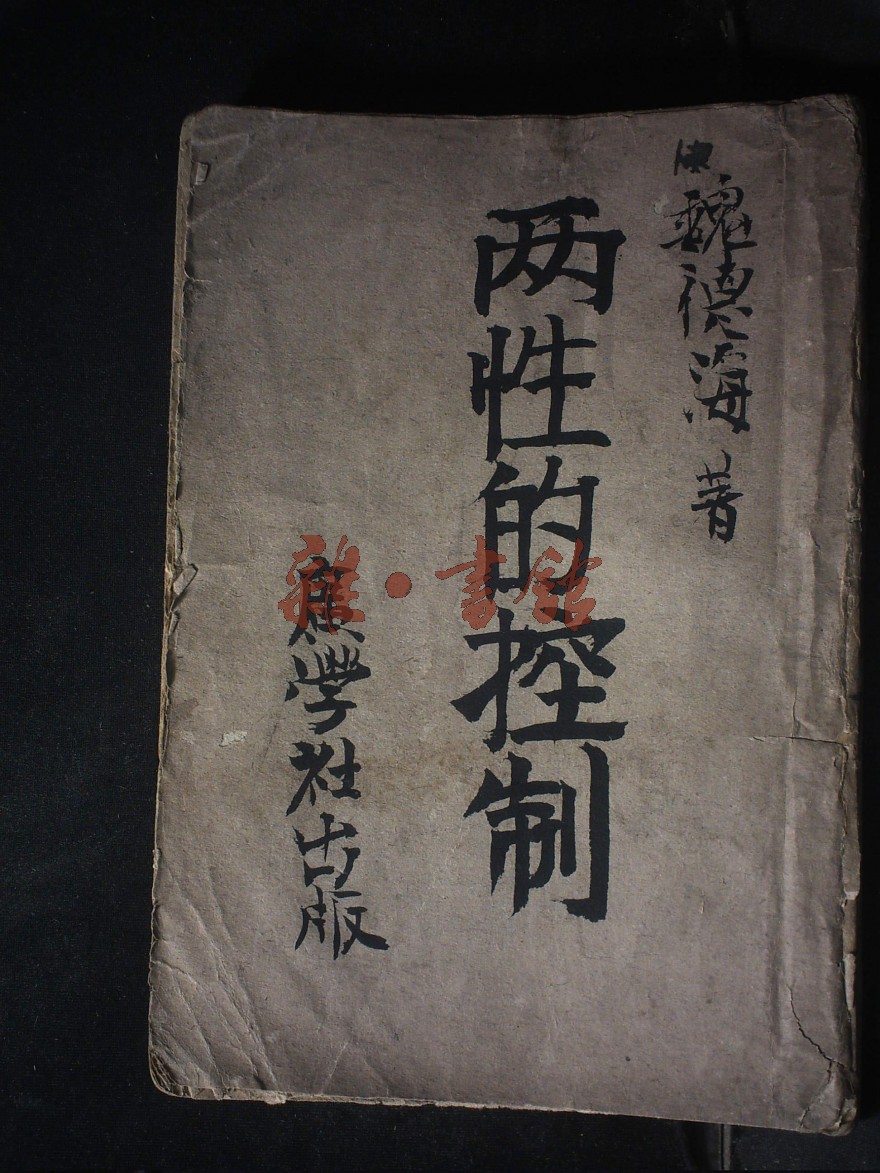 魏德海 著
两性的控制
學社出版
雜·書館